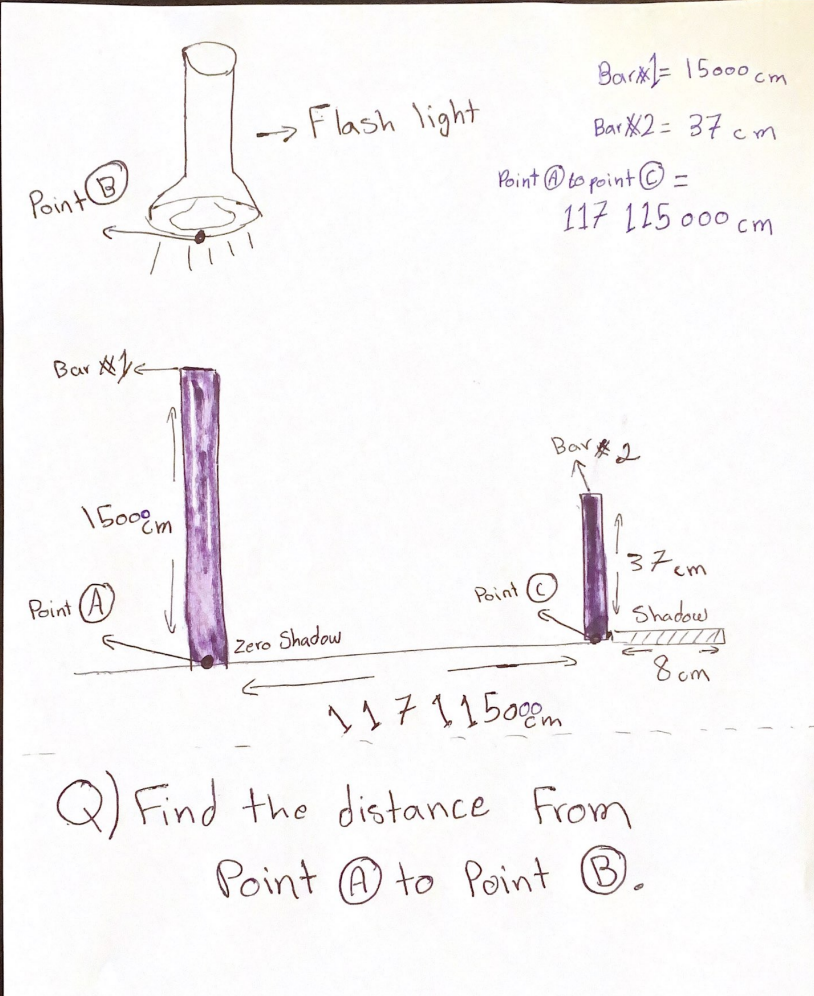 Bar#1= 15000 cm
→ Flash light
Bar#2= 37 cm
Point Ⓑ
Point Ⓐ to point Ⓒ =
117 115 000 cm
Bar #1
Bar # 2
15000 cm
37 cm
Point Ⓒ
Point Ⓐ
Shadow
Zero Shadow
8 cm
117 115000 cm
Q) Find the distance From
Point Ⓐ to Point Ⓑ.